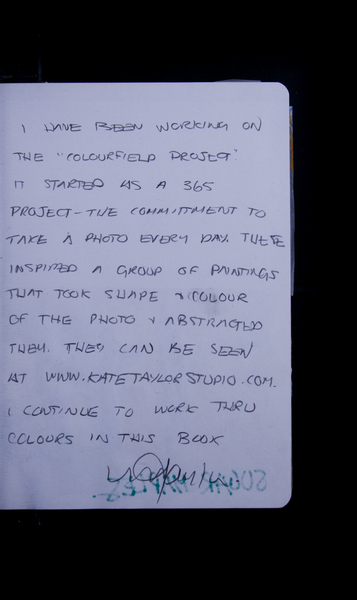 I HAVE BEEN WORKING ON
THE "COLOURFIELD PROJECT".
IT STARTED AS A 365
PROJECT - THE COMMITTMENT TO
TAKE A PHOTO EVERY DAY. THESE
INSPIRED A GROUP OF PAINTINGS
THAT TOOK SHAPE & COLOUR
OF THE PHOTO & ABSTRACTED
THEM. THEY CAN BE SEEN
AT WWW.KATETAYLORSTUDIO.COM.
I CONTINUE TO WORK THRU
COLOURS IN THIS BOOK